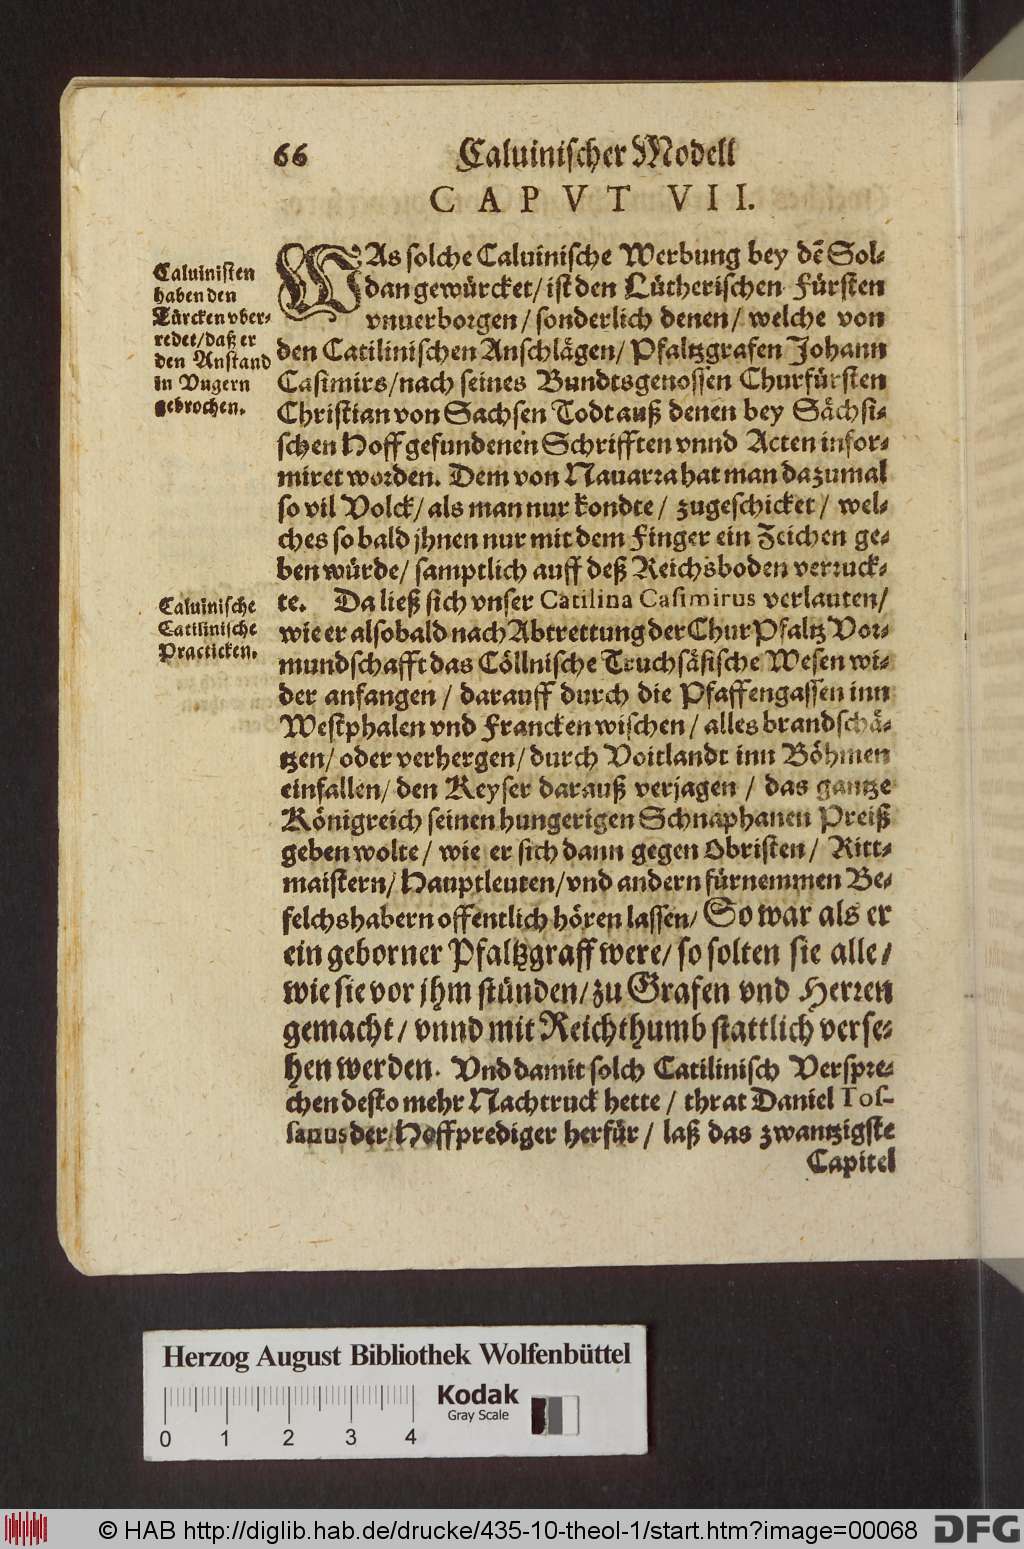 66
Caluinischer Modell
CAPVT VII.
Caluinisten
haben den
Türcken vber-
redet/daß er
den Anstand
in Vngern
gebrochen.
WAs solche Caluinische Werbung bey dẽ Sol-
dan gewürcket/ ist den Lütherischen Fürsten
vnuerborgen/ sonderlich denen/ welche von
den Catilinischen Anschlägen/ Pfaltzgrafen Johann
Casimirs/nach seines Bundtsgenossen Churfürsten
Christian von Sachsen Todt auß denen bey Sächsi-
schen Hoff gefundenen Schrifften vnnd Acten infor-
miret worden. Dem von Nauarra hat man dazumal
so vil Volck/ als man nur kondte/ zugeschicket/ wel-
ches so bald jhnen nur mit dem Finger ein Zeichen ge-
ben würde/ samptlich auff deß Reichsboden verruck-
te. Da ließ sich vnser Catilina Casimirus verlauten/
wie er alsobald nach Abtrettung der ChurPfaltz Vor-
mundschafft das Cöllnische Truchsäsische Wesen wi-
der anfangen/ darauff durch die Pfaffengassen inn
Westphalen vnd Francken wischen/ alles brandschä-
tzen/ oder verhergen/ durch Voitlandt inn Böhmen
einfallen/ den Keyser darauß verjagen/ das gantze
Königreich seinen hungerigen Schnaphanen Preiß
geben wolte/ wie er sich dann gegen Obristen/ Ritt-
maistern/ Hauptleuten/ vnd andern fürnemmen Be-
felchshabern offentlich hören lassen/ So war als er
ein geborner Pfaltzgraff were/ so solten sie alle/
wie sie vor jhm stünden/ zu Grafen vnd Herren
gemacht/ vnnd mit Reichthumb stattlich verse-
hen werden. Vnd damit solch Catilinisch Verspre-
chen desto mehr Nachtruck hette/ thrat Daniel Tos-
sanus der Hoffprediger herfür/ laß das zwantzigste
Capitel
Caluinische
Catilinische
Practicken.
Herzog August Bibliothek Wolfenbüttel
Kodak
Gray Scale
0 1 2 3 4
© HAB http://diglib.hab.de/drucke/435-10-theol-1/start.htm?image=00068
DFG